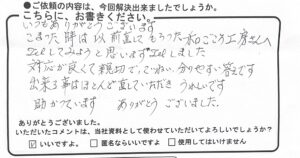 ●ご依頼の内容は、今回解決出来ましたでしょうか。
こちらに、お書きください。
いつもありがとうございます
こまった時は以前直してもらった 和ごころ工房さんへ
Telしてみようと思います Telしました
対応が良くて親切で、ていねい、分りやすい答えです
出来る事はほとんど直していただき うれしいです
助かっています ありがとうございました。
ありがとうございました。
いただいたコメントは、当社資料として使わせていただいてよろしいでしょうか?
☑いいですよ。 □匿名ならいいですよ □使用してはいけません